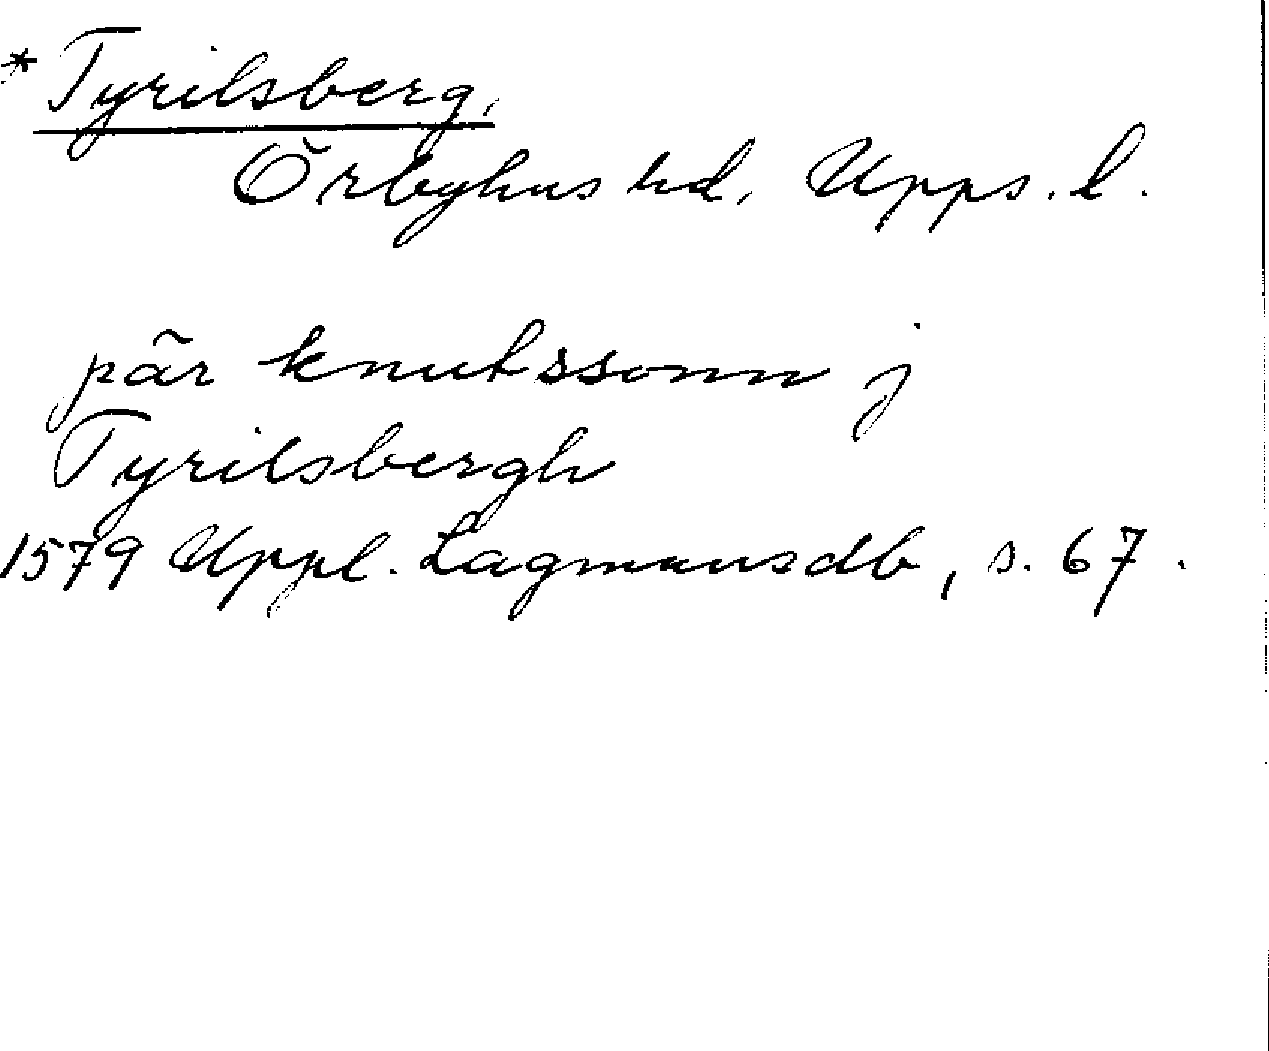 * Tyrilsberg,
Örbyhus hd, Upps. l.
pär knutssonn j
Tyrilsbergh
1579 Uppl. Lagmansdb, s. 67.